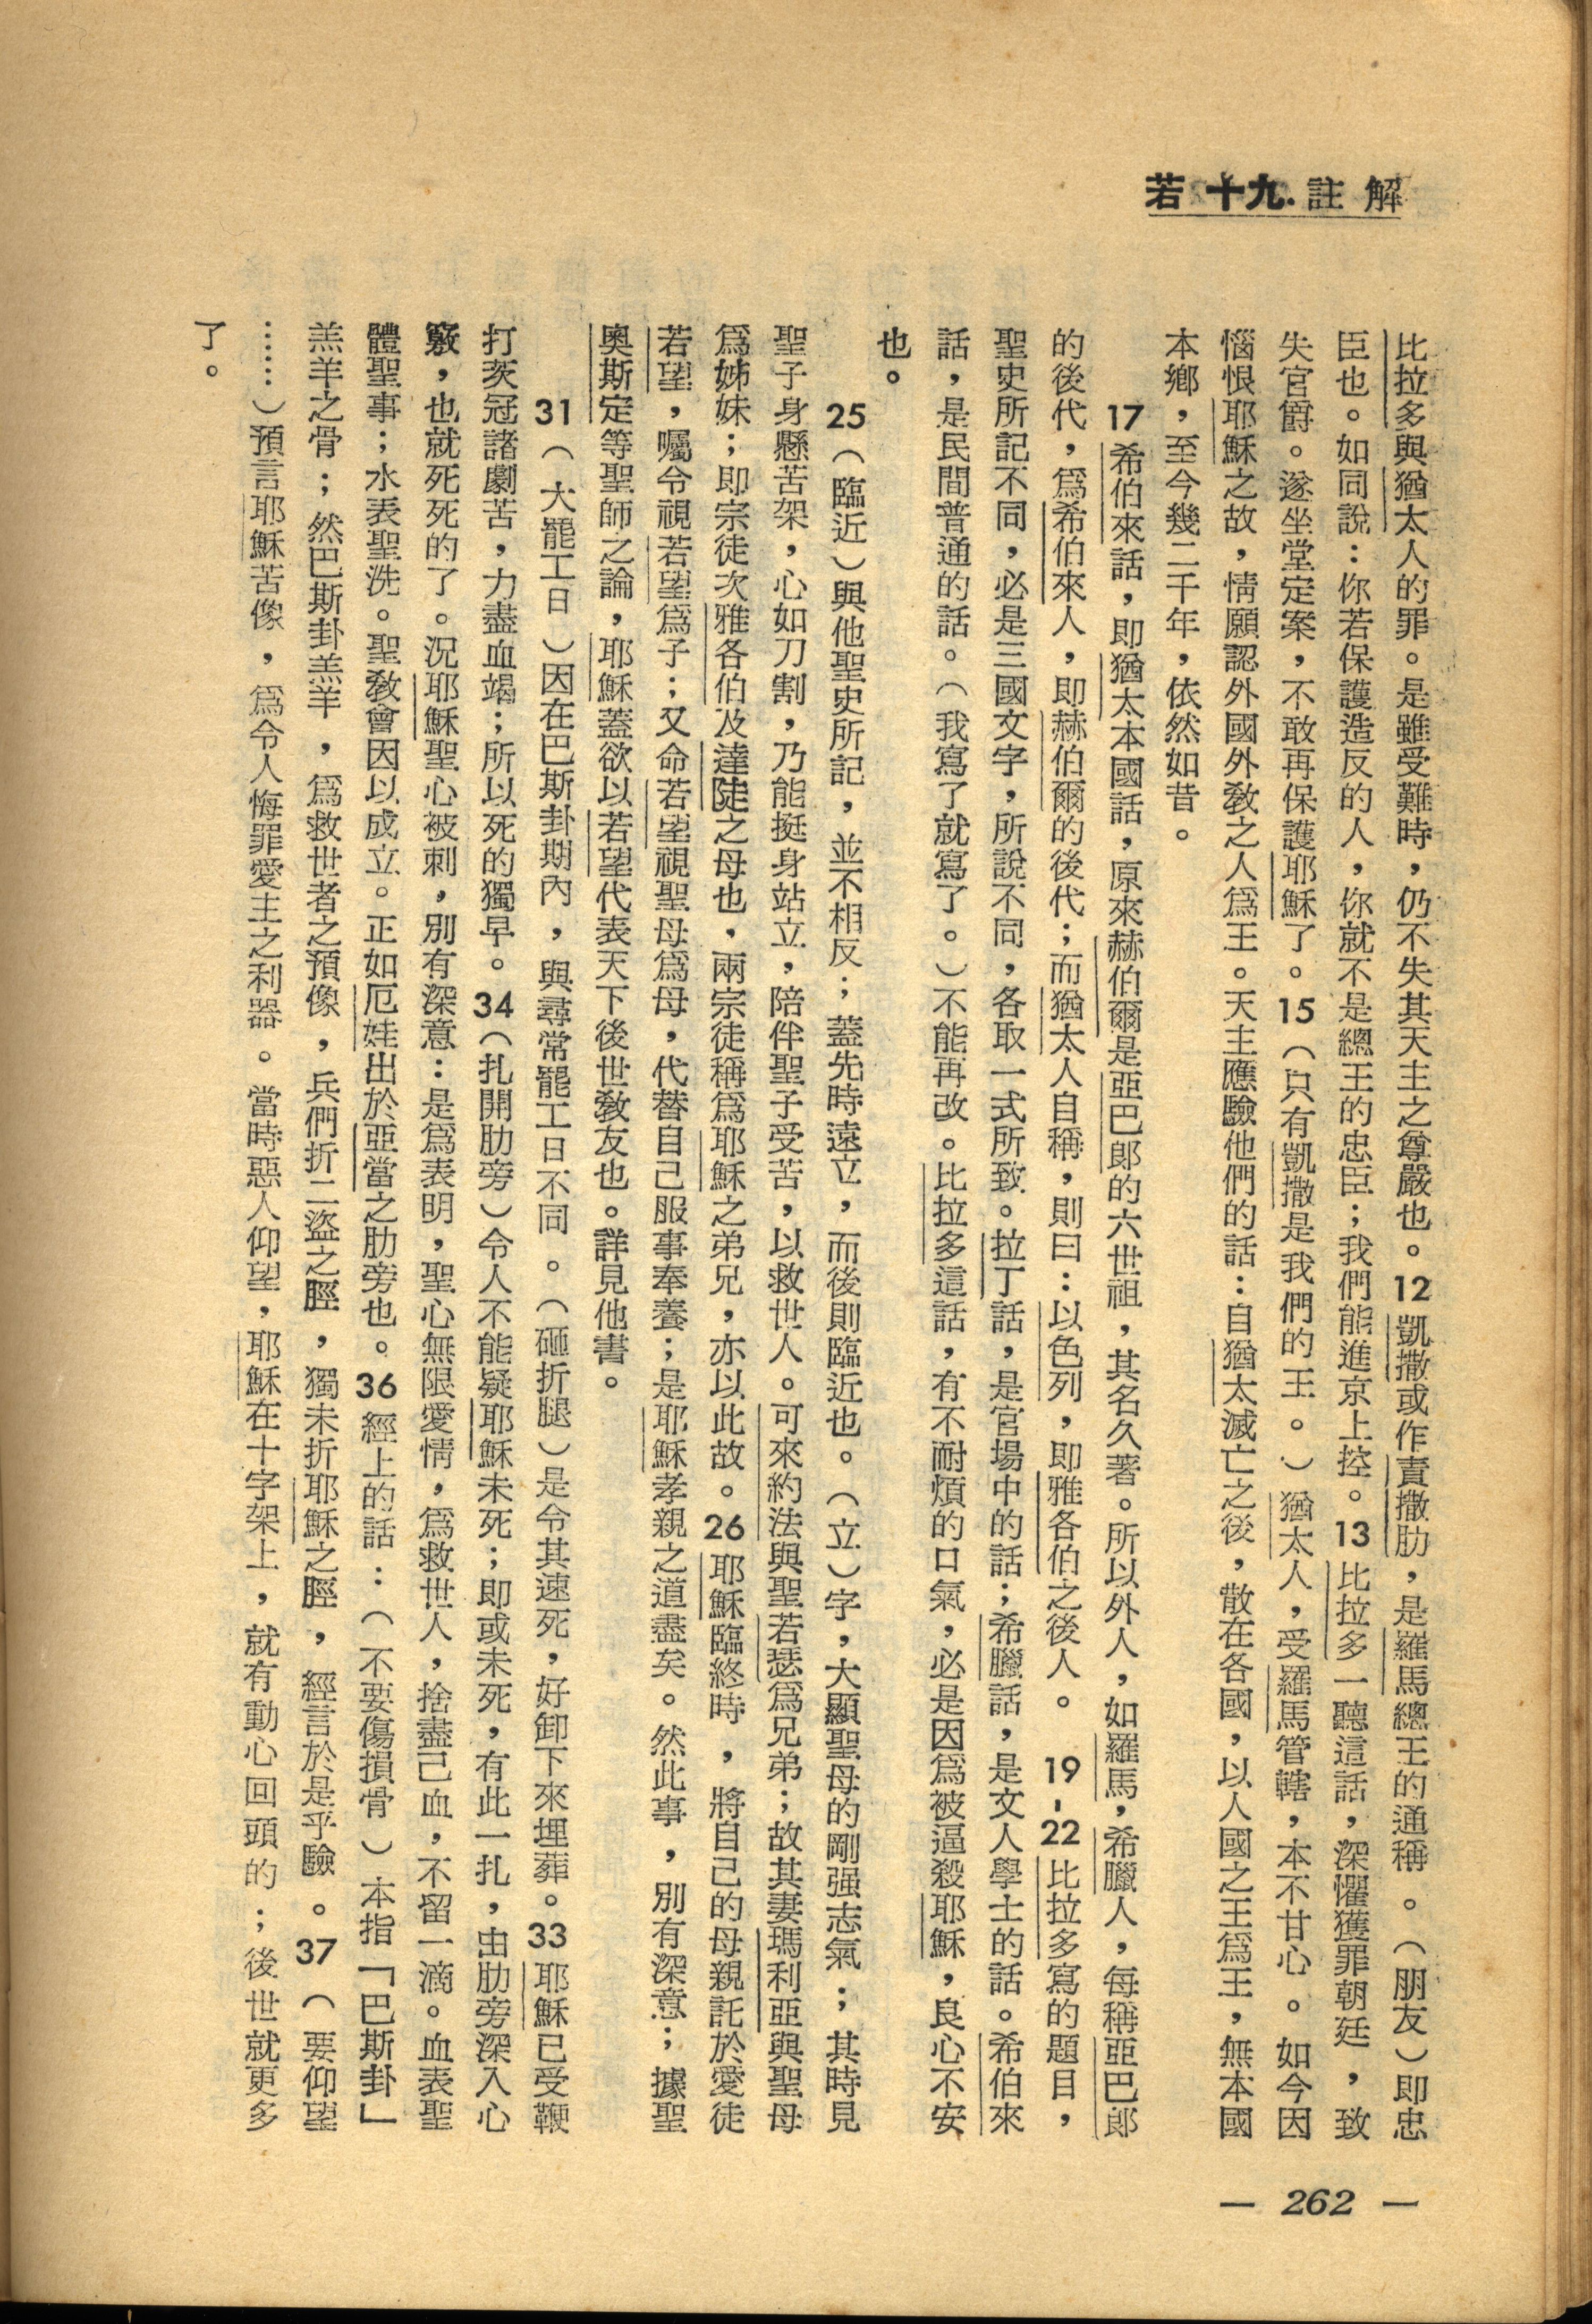 若 十九. 註解
比拉多與猶太人的罪。是雖受難時，仍不失其天主之尊嚴也。12 凱撒或作責撒肋，是羅馬總王的通稱。（朋友）即忠
臣也。如同說：你若保護造反的人，你就不是總王的忠臣；我們能進京上控。13 比拉多一聽這話，深懼獲罪朝廷，致
失官爵。遂坐堂定案，不敢再保護耶穌了。15（只有凱撒是我們的王。）猶太人，受羅馬管轄，本不甘心。如今因
惱恨耶穌之故，情願認外國外敎之人爲王。天主應驗他們的話：自猶太滅亡之後，散在各國，以人國之王爲王，無本國
本鄉，至今幾二千年，依然如昔。
17 希伯來話，即猶太本國話，原來赫伯爾是亞巴郎的六世祖，其名久著。所以外人，如羅馬，希臘人，每稱亞巴郎
的後代，爲希伯來人，即赫伯爾的後代；而猶太人自稱，則曰：以色列，即雅各伯之後人。 19-22 比拉多寫的題目，
聖史所記不同，必是三國文字，所說不同，各取一式所致。拉丁話，是官場中的話；希臘話，是文人學士的話。希伯來
話，是民間普通的話。（我寫了就寫了。）不能再改。比拉多這話，有不耐煩的口氣，必是因爲被逼殺耶穌，良心不安
也。
25（臨近）與他聖史所記，並不相反；蓋先時遠立，而後則臨近也。（立）字，大顯聖母的剛强志氣；其時見
聖子身懸苦架，心如刀割，乃能挺身站立，陪伴聖子受苦，以救世人。可來約法與聖若瑟爲兄弟；故其妻瑪利亞與聖母
爲姊妹；即宗徒次雅各伯及達陡之母也，兩宗徒稱爲耶穌之弟兄，亦以此故。26 耶穌臨終時，將自己的母親託於愛徒
若望，囑令視若望爲子；又命若望視聖母爲母，代替自己服事奉養；是耶穌孝親之道盡矣。然此事，別有深意；據聖
奧斯定等聖師之論，耶穌蓋欲以若望代表天下後世敎友也。詳見他書。
31（大罷工日）因在巴斯卦期內，與尋常罷工日不同。（砸折腿）是令其速死，好卸下來埋葬。33 耶穌已受鞭
打茨冠諸劇苦，力盡血竭；所以死的獨早。34（扎開肋旁）令人不能疑耶穌未死；即或未死，有此一扎，由肋旁深入心
竅，也就死死的了。況耶穌聖心被刺，別有深意：是爲表明，聖心無限愛情，爲救世人，捨盡己血，不留一滴。血表聖
體聖事；水表聖洗。聖敎會因以成立。正如厄娃出於亞當之肋旁也。36 經上的話：（不要傷損骨）本指「巴斯卦」
羔羊之骨；然巴斯卦羔羊，爲救世者之預像，兵們折二盜之脛，獨未折耶穌之脛，經言於是乎驗。37（要仰望
……）預言耶穌苦像，爲令人悔罪愛主之利器。當時惡人仰望，耶穌在十字架上，就有動心回頭的；後世就更多
了。
— 262 —